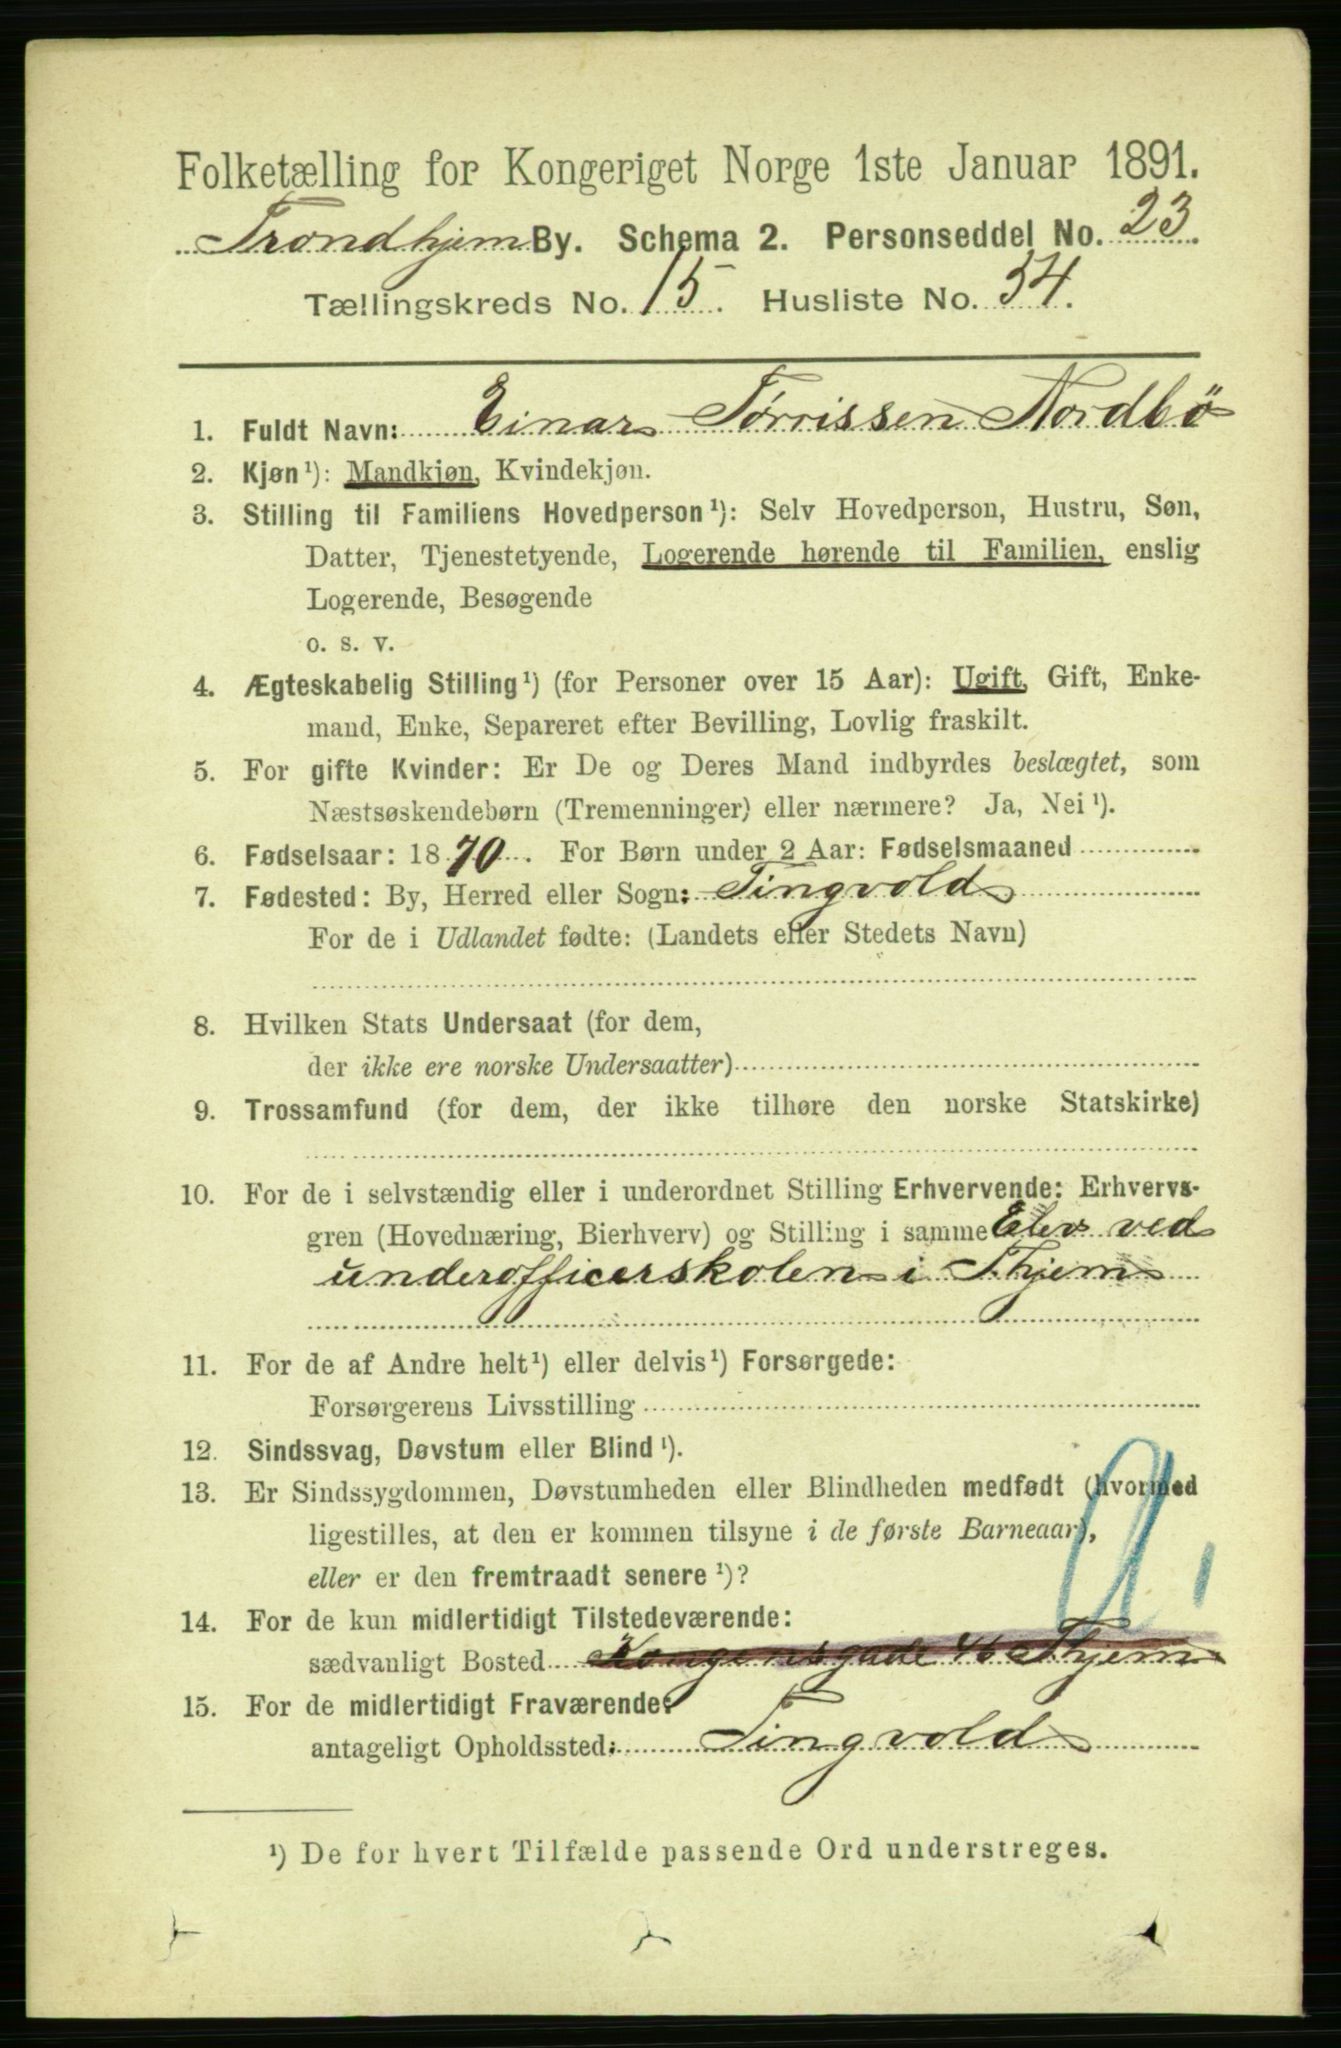 Folketælling for Kongeriget Norge 1ste Januar 1891.
Trondhjem By. Schema 2. Personseddel No. 23
Tællingskreds No. 15. Husliste No. 54.
1. Fuldt Navn: Einar Tørrissen Nordbö
2. Kjøn¹): Mandkjøn, Kvindekjøn.
3. Stilling til Familiens Hovedperson¹): Selv Hovedperson, Hustru, Søn,
Datter, Tjenestetyende, Logerende hørende til Familien, enslig
Logerende, Besøgende
o. s. v.
4. Ægteskabelig Stilling¹) (for Personer over 15 Aar): Ugift, Gift, Enke-
mand, Enke, Separeret efter Bevilling, Lovlig fraskilt.
5. For gifte Kvinder: Er De og Deres Mand indbyrdes beslægtet, som
Næstsøskendebørn (Tremenninger) eller nærmere? Ja, Nei¹).
6. Fødselsaar: 1870. For Børn under 2 Aar: Fødselsmaaned
7. Fødested: By, Herred eller Sogn: Tingvold
For de i Udlandet fødte: (Landets eller Stedets Navn)
8. Hvilken Stats Undersaat (for dem,
der ikke ere norske Undersaatter)
9. Trossamfund (for dem, der ikke tilhøre den norske Statskirke)
10. For de i selvstændig eller i underordnet Stilling Erhvervende: Erhvervs-
gren (Hovednæring, Bierhverv) og Stilling i samme Elev ved
underofficerskolen i Thjem
11. For de af Andre helt¹) eller delvis¹) Forsørgede:
Forsørgerens Livsstilling
12. Sindssvag, Døvstum eller Blind¹).
13. Er Sindssygdommen, Døvstumheden eller Blindheden medfødt (hvormed
ligestilles, at den er kommen tilsyne i de første Barneaar),
eller er den fremtraadt senere¹)?
14. For de kun midlertidigt Tilstedeværende:
sædvanligt Bosted Kongensgade 46 Thjem
15. For de midlertidigt Fraværende:
antageligt Opholdssted: Tingvold
¹) De for hvert Tilfælde passende Ord understreges.